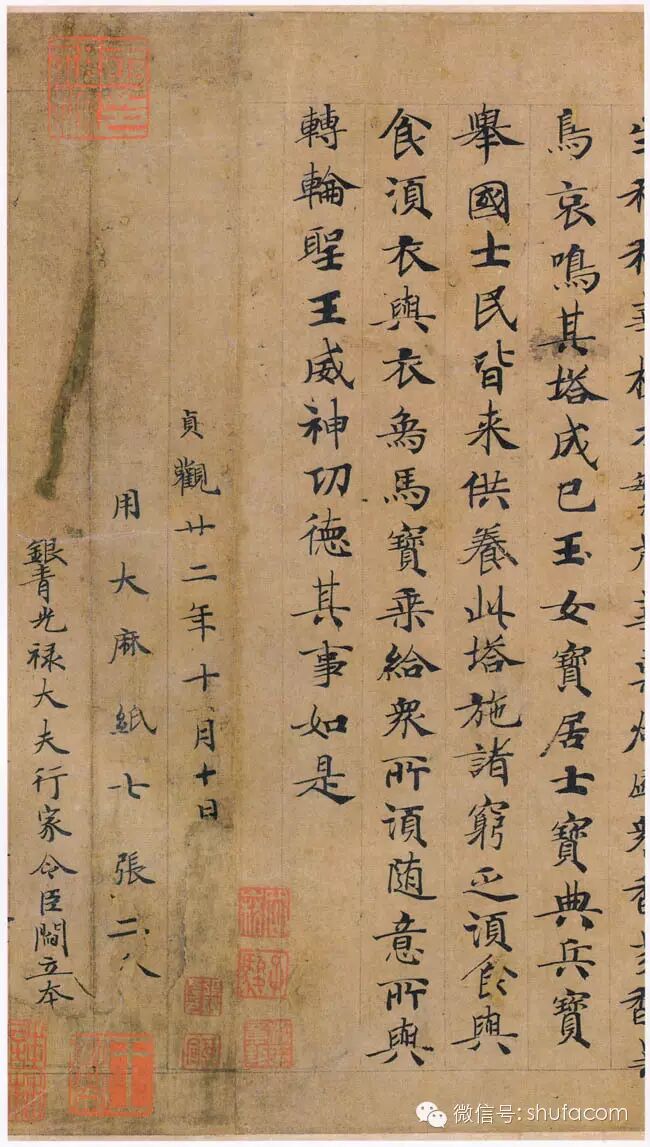 鳥哀鳴其塔成已玉女寶居士寶典兵寶
舉國士民皆来供養此塔施諸窮乏須食與
食須衣與衣象馬寶乗給衆所須随意所與
轉輪聖王威神功德其事如是
貞觀廿二年十月十日
用大麻紙七張二分
銀青光禄大夫行家令臣閻立本
微信号: shufacom